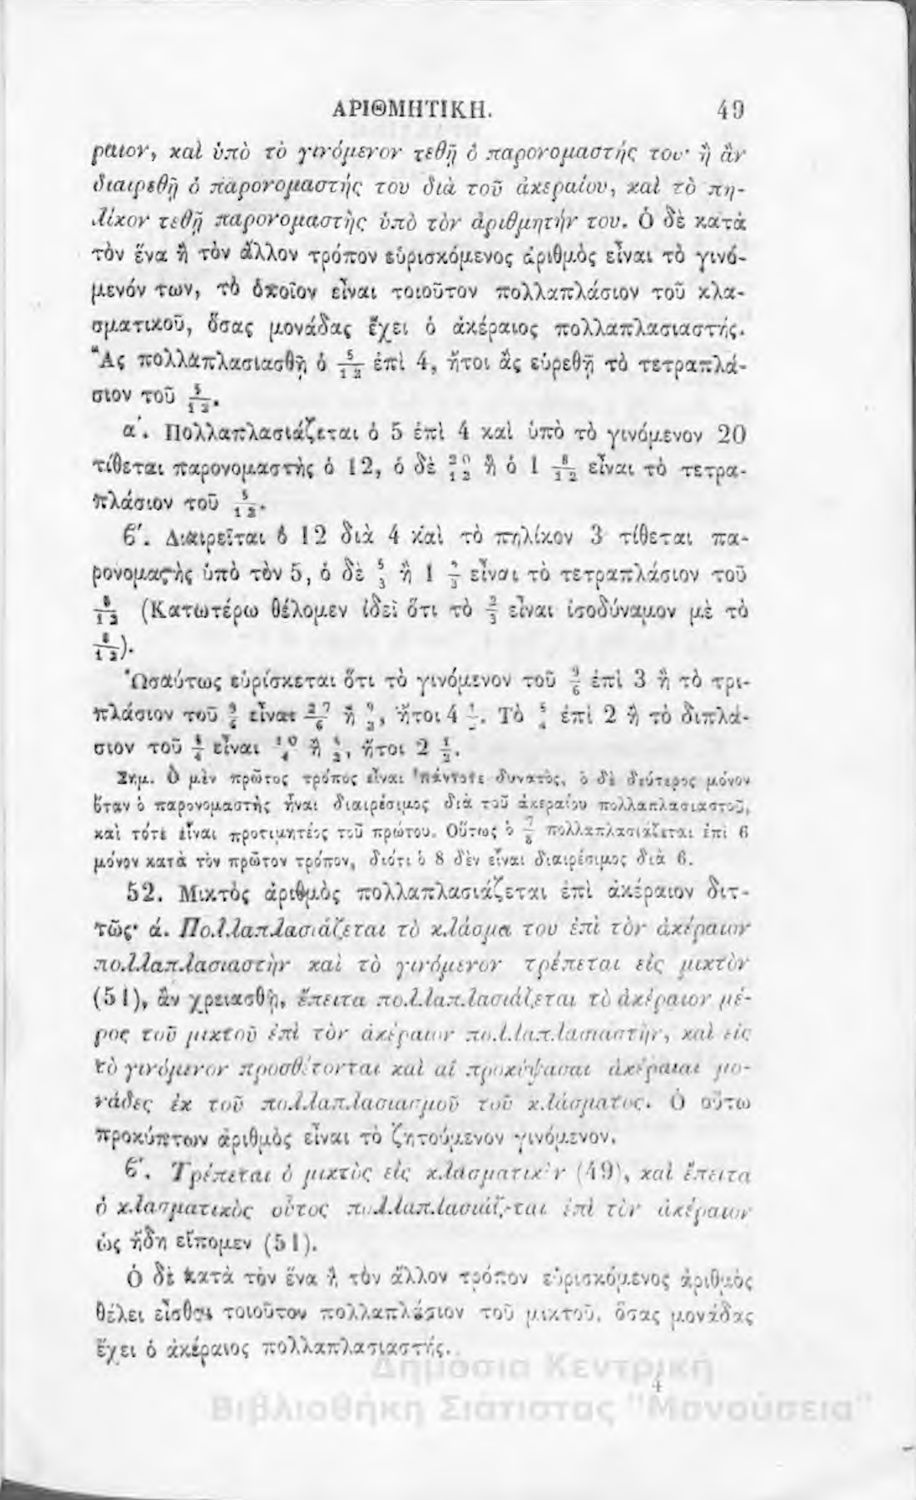 ΑΡΙΘΜΗΤΙΚΗ. 49
ραιον, καὶ ὑπὸ τὸ γινόμενον τεθῇ ὁ παρονομαστής του· ἢ ἂν
διαιρεθῇ ὁ παρονομαστής του διὰ τοῦ ἀκεραίου, καὶ τὸ πη-
λίκον τεθῇ παρονομαστὴς ὑπὸ τὸν ἀριθμητήν του. Ὁ δὲ κατὰ
τὸν ἕνα ἢ τὸν ἄλλον τρόπον εὑρισκόμενος ἀριθμὸς εἶναι τὸ γινό-
μενόν των, τὸ ὁποῖον εἶναι τοιοῦτον πολλαπλάσιον τοῦ κλα-
σματικοῦ, ὅσας μονάδας ἔχει ὁ ἀκέραιος πολλαπλασιαστής.
Ἂς πολλαπλασιασθῇ ὁ 5/12 ἐπὶ 4, ἤτοι ἂς εὑρεθῇ τὸ τετραπλά-
σιον τοῦ 5/12.
α΄. Πολλαπλασιάζεται ὁ 5 ἐπὶ 4 καὶ ὑπὸ τὸ γινόμενον 20
τίθεται παρονομαστὴς ὁ 12, ὁ δὲ 20/12 ἢ ὁ 1 8/12 εἶναι τὸ τετρα-
πλάσιον τοῦ 5/12.
ϐ΄. Διαιρεῖται ὁ 12 διὰ 4 καὶ τὸ πηλίκον 3 τίθεται πα-
ρονομαςὴς ὑπὸ τὸν 5, ὁ δὲ 5/3 ἢ 1 2/3 εἶναι τὸ τετραπλάσιον τοῦ
5/12 (Κατωτέρω θέλομεν ἰδεῖ ὅτι τὸ 2/3 εἶναι ἰσοδύναμον μὲ τὸ
8/12).
Ὡσαύτως εὑρίσκεται ὅτι τὸ γινόμενον τοῦ 9/6 ἐπὶ 3 ἢ τὸ τρι-
πλάσιον τοῦ 9/6 εἶναι 27/6 ἢ 9/2, ἤτοι 4 1/2. Τὸ 5/4 ἐπὶ 2 ἢ τὸ διπλά-
σιον τοῦ 5/4 εἶναι 10/4 ἢ 5/2, ἤτοι 2 1/2.
Σημ. Ὁ μὲν πρῶτος τρόπος εἶναι πάντοτε δυνατὸς, ὁ δὲ δεύτερος μόνον
ὅταν ὁ παρονομαστὴς ἦναι διαιρέσιμος διὰ τοῦ ἀκεραίου πολλαπλασιαστοῦ,
καὶ τότε εἶναι προτιμητέος τοῦ πρώτου. Οὕτως ὁ 7/8 πολλαπλασιάζεται ἐπὶ 6
μόνον κατὰ τὸν πρῶτον τρόπον, διότι ὁ 8 δὲν εἶναι διαιρέσιμος διὰ 6.
52. Μικτὸς ἀριθμὸς πολλαπλασιάζεται ἐπὶ ἀκέραιον διτ-
τῶς· ά. Πολλαπλασιάζεται τὸ κλάσμα του ἐπὶ τὸν ἀκέραιον
πολλαπλασιαστὴν καὶ τὸ γινόμενον τρέπεται εἰς μικτὸν
(51), ἂν χρειασθῇ, ἔπειτα πολλαπλασιάζεται τὸ ἀκέραιον μέ-
ρος τοῦ μικτοῦ ἐπὶ τὸν ἀκέραιον πολλαπλασιαστὴν, καὶ εἰς
τὸ γινόμενον προσθέτονται καὶ αἱ προκύψασαι ἀκέραιαι μο-
νάδες ἐκ τοῦ πολλαπλασιασμοῦ τοῦ κλάσματος. Ὁ οὕτω
προκύπτων ἀριθμὸς εἶναι τὸ ζητούμενον γινόμενον.
ϐ΄. Τρέπεται ὁ μικτὸς εἰς κλασματικὸν (49), καὶ ἔπειτα
ὁ κλασματικὸς οὗτος πολλαπλασιάζεται ἐπὶ τὸν ἀκέραιον
ὡς ἤδη εἴπομεν (51).
Ὁ δὲ κατὰ τὸν ἕνα ἢ τὸν ἄλλον τρόπον εὑρισκόμενος ἀριθμὸς
θέλει εἶσθαι τοιοῦτον πολλαπλάσιον τοῦ μικτοῦ, ὅσας μονάδας
ἔχει ὁ ἀκέραιος πολλαπλασιαστής.
4
Δημόσια Κεντρική
Βιβλιοθήκη Σιάτιστας "Μανούσεια"